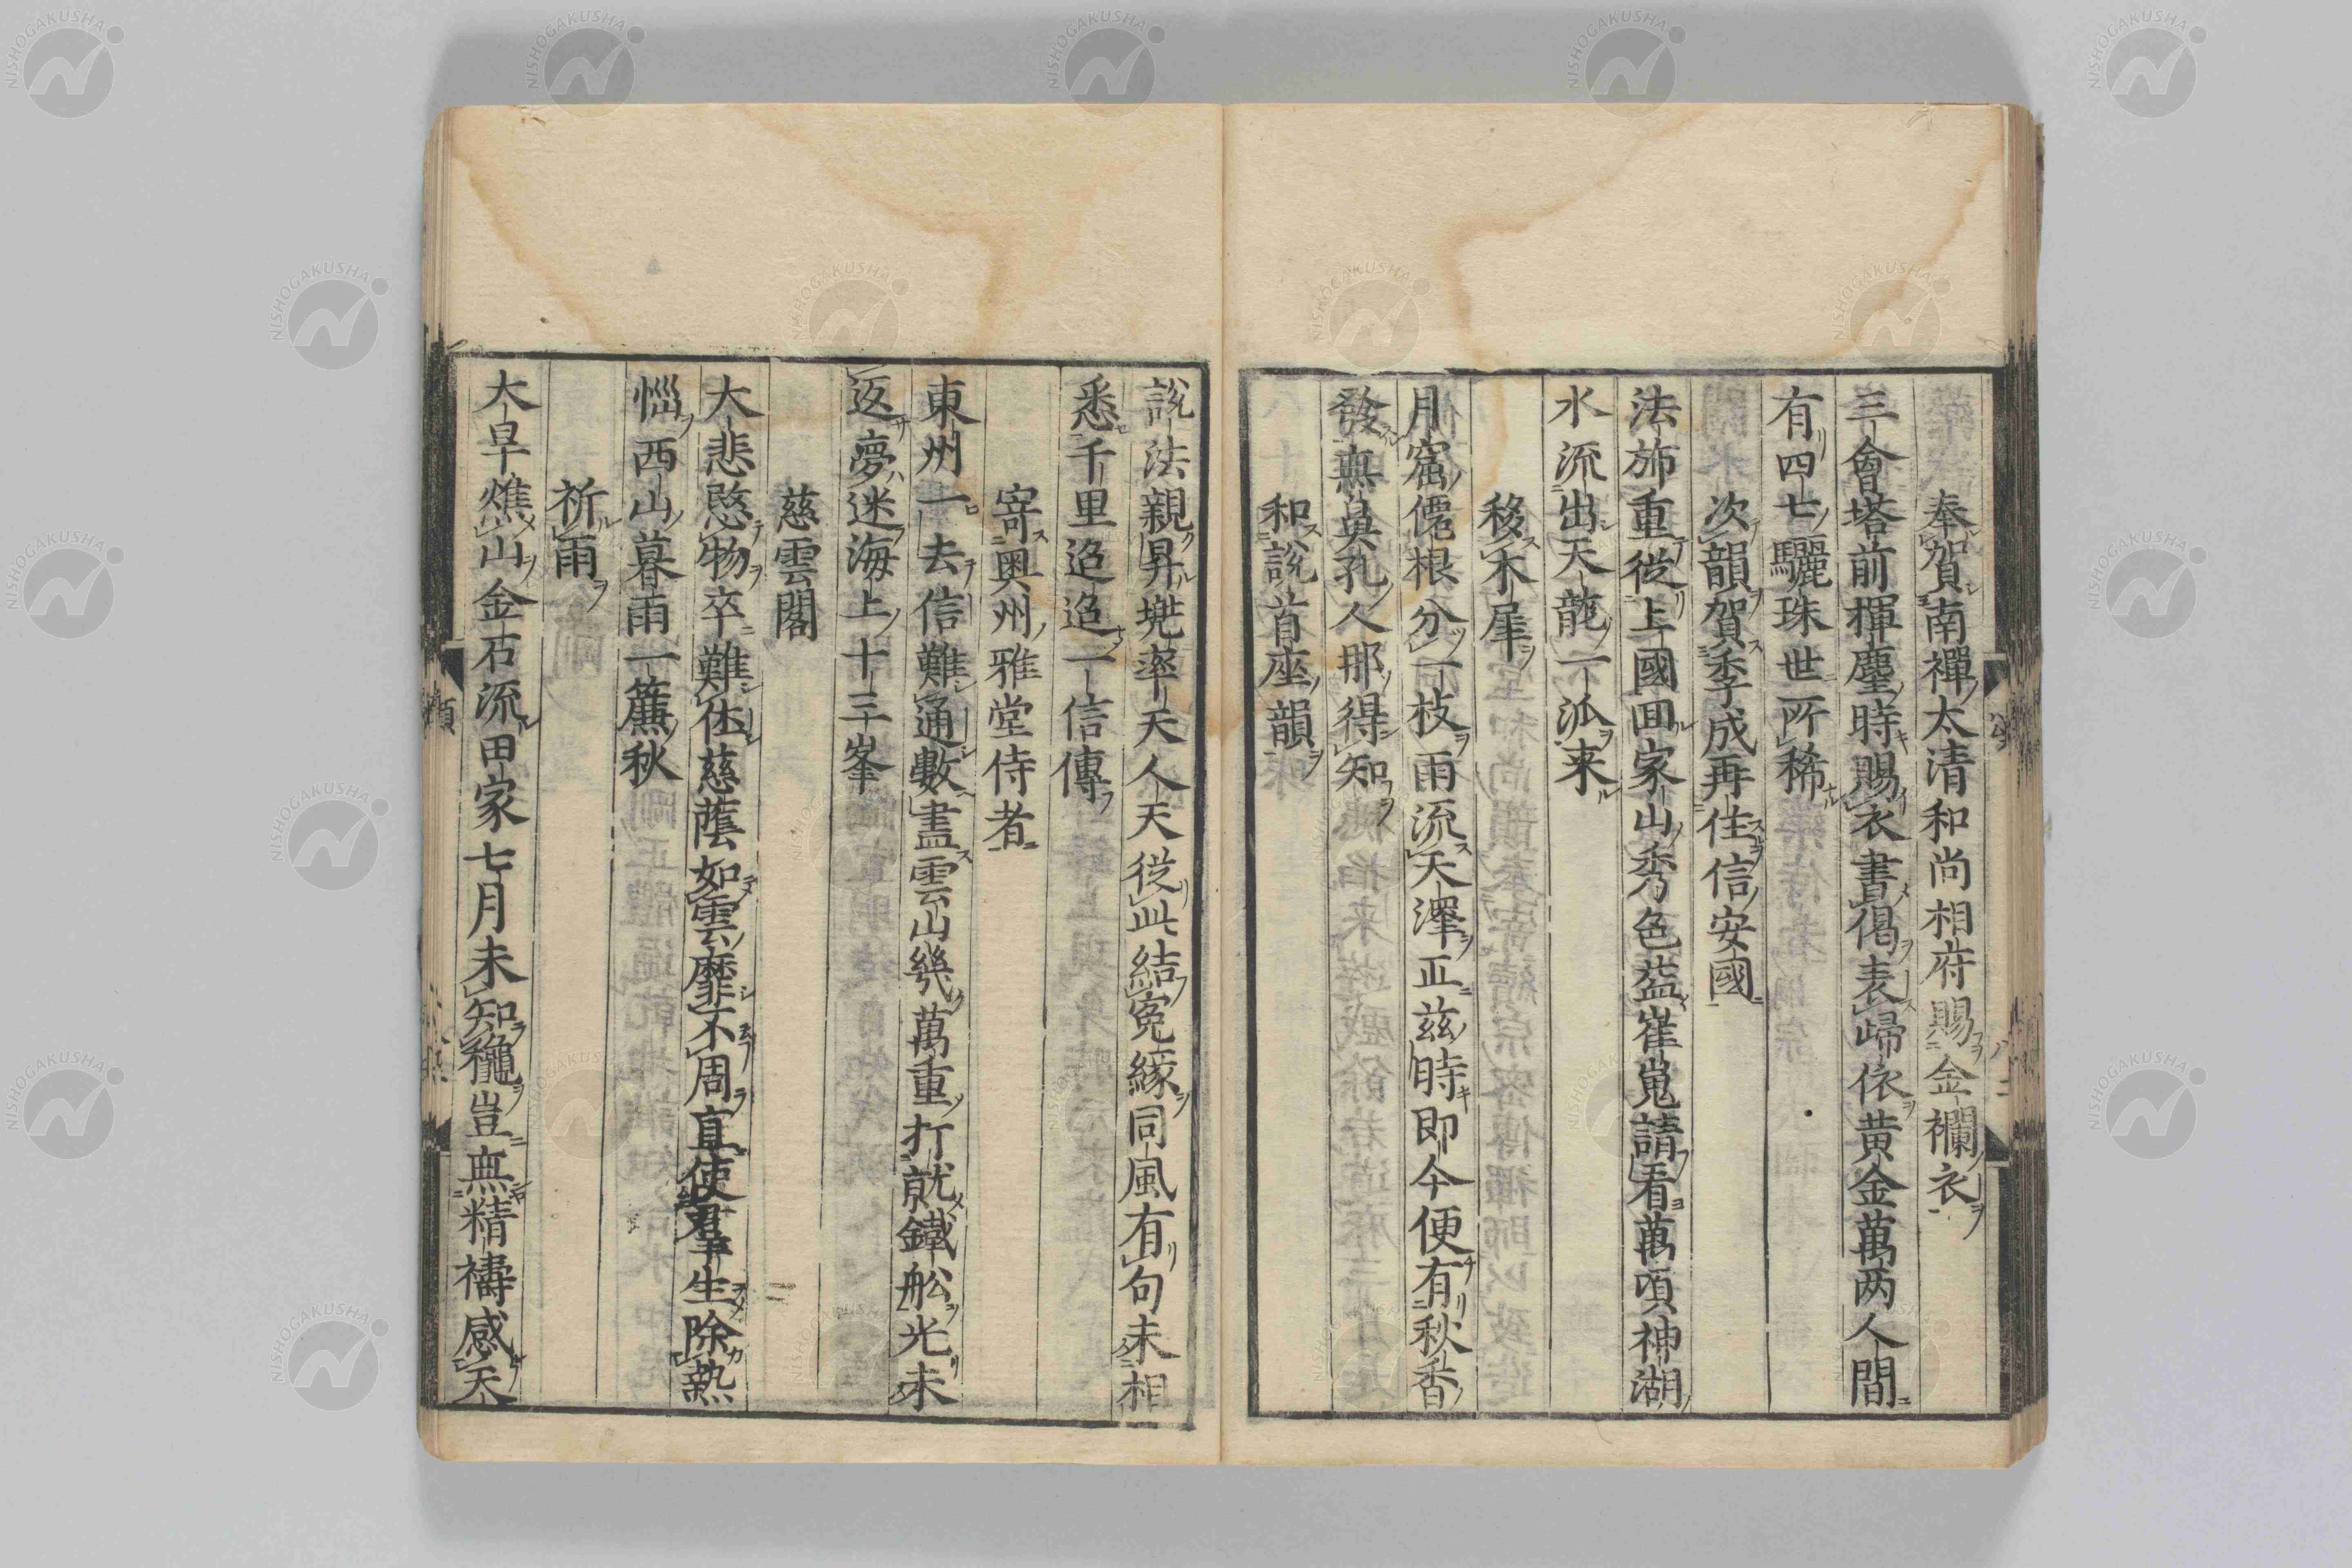 奉賀南禪太清和尚相府賜金襴衣
三會塔前揮麈時賜衣書偈表歸依黄金萬两人間
有四七驪珠世所稀
次韻賀季成再住信安國
法斾重從上國囬家山秀色益崔嵬請看萬頃神湖
水流出天龍一泒来
移木犀
月窟僊根分一枝雨流天澤正兹時即今便有秋香
發無鼻孔人那得知
和説首座韻
説法親昇兠率天人天從此結寃緣同風有句未相
悉千里迢迢一信傳
寄奥州雅堂侍者
東州一去信難通數盡雲山幾萬重打就鐵舩光未
返夢迷海上十三峯
慈雲閣
大悲愍物卒難休慈蔭如雲靡不周直使羣生除熱
惱西山暮雨一簾秋
祈雨
大旱燋山金石流田家七月未知穐豈無精禱感天